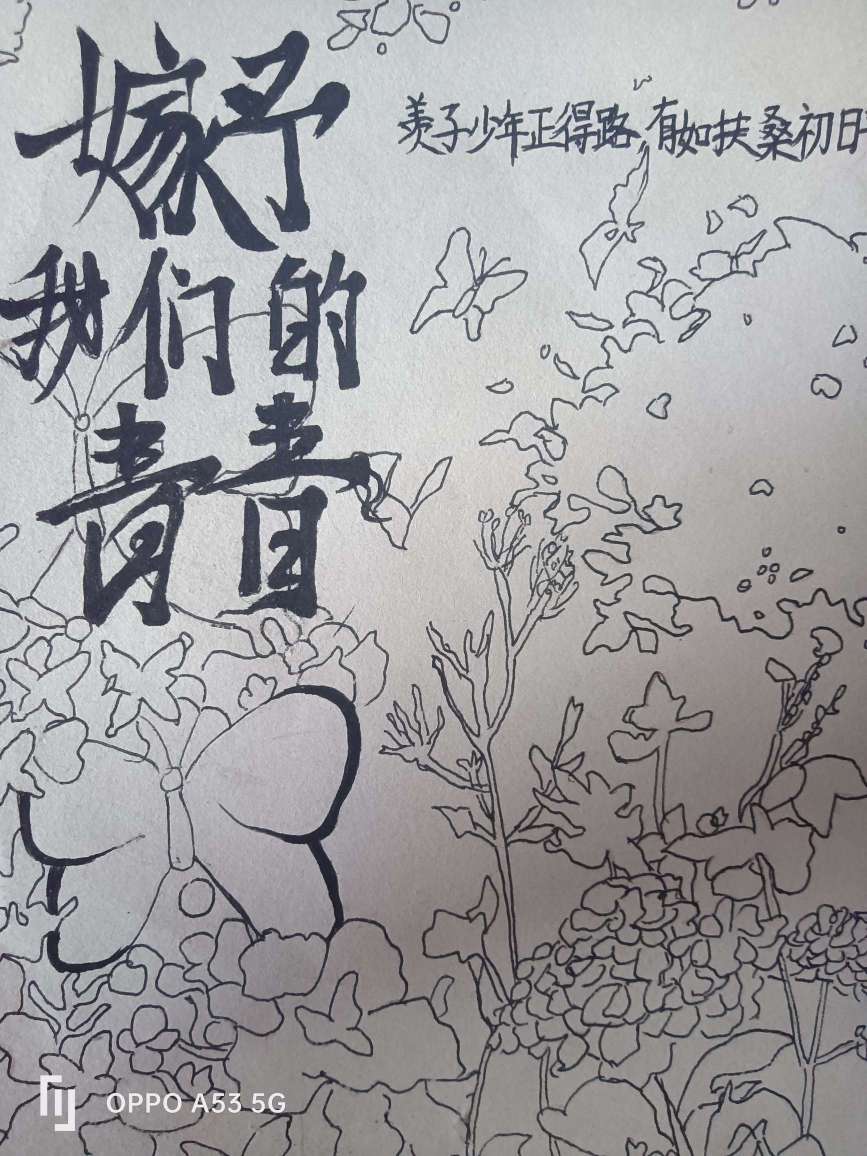 嫁予
我们的
青春
羡子少年正得路,有如扶桑初日
OPPO A53 5G